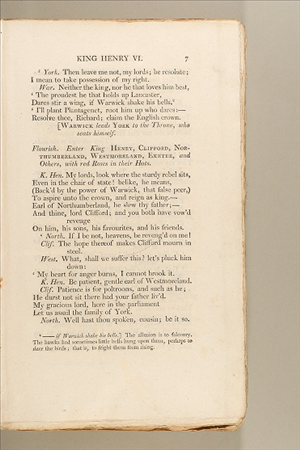 KING HENRY VI. 7
' York. Then leave me not, my lords; be resolute;
I mean to take possession of my right.
War. Neither the king, nor he that loves him best,
' The proudest he that holds up Lancaster,
Dares stir a wing, if Warwick shake his bells.
' I'll plant Plantagenet, root him up who dares:—
Resolve thee, Richard; claim the English crown.
[WARWICK leads YORK to the Throne, who
seats himself.
Flourish. Enter King HENRY, CLIFFORD, NOR-
THUMBERLAND, WESTMORELAND, EXETER, and
Others, with red Roses in their Hats.
K. Hen. My lords, look where the sturdy rebel sits,
Even in the chair of state! belike, he means,
(Back'd by the power of Warwick, that false peer,)
To aspire unto the crown, and reign as king.—
Earl of Northumberland, he slew thy father;—
And thine, lord Clifford; and you both have vow'd
revenge
On him, his sons, his favourites, and his friends.
' North. If I be not, heavens, be reveng'd on me!
Clif. The hope thereof makes Clifford mourn in
steel.
West. What, shall we suffer this? let's pluck him
down:
' My heart for anger burns, I cannot brook it.
K. Hen. Be patient, gentle earl of Westmoreland.
Clif. Patience is for poltroons, and such as he;
He durst not sit there had your father liv'd.
My gracious lord, here in the parliament
Let us assail the family of York.
North. Well hast thou spoken, cousin; be it so.
— if Warwick shake his bells.] The allusion is to falconry.
The hawks had sometimes little bells hung upon them, perhaps to
dare the birds; that is, to fright them from rising.